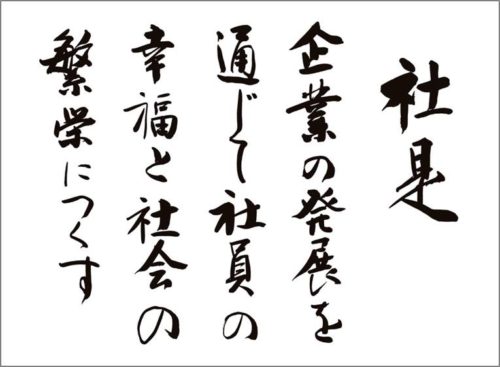 社是
企業の発展を
通じて社員の
幸福と社会の
繁栄につくす